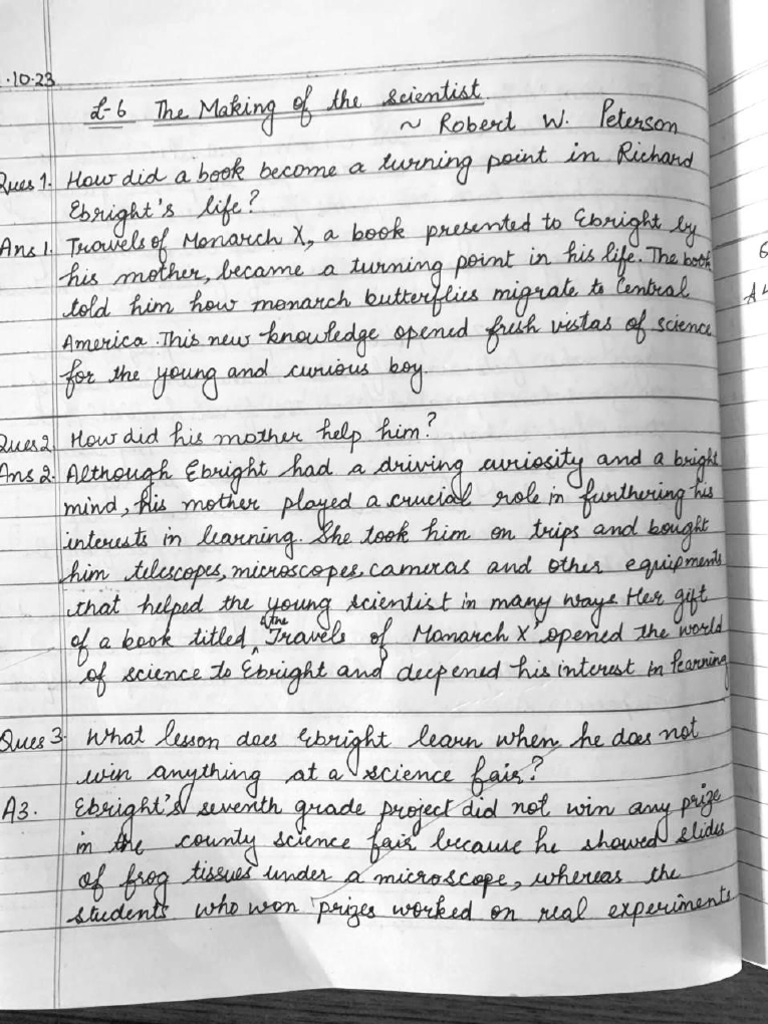 .10.23
L-6 The Making of the scientist
~ Robert W. Peterson
Ques 1. How did a book become a turning point in Richard
Ebright's life?
Ans 1. Travels of Monarch X, a book presented to Ebright by
his mother, became a turning point in his life. The book
told him how monarch butterflies migrate to Central
America. This new knowledge opened fresh vistas of science
for the young and curious boy.
Ques 2. How did his mother help him?
Ans 2. Although Ebright had a driving curiosity and a bright
mind, his mother played a crucial role in furthering his
interests in learning. She took him on trips and bought
him telescopes, microscopes, cameras and other equipments
that helped the young scientist in many ways. Her gift
of a book titled, 'The Travels of Monarch X' opened the world
of science to Ebright and deepened his interest in learning
Ques 3. What lesson does Ebright learn when he does not
win anything at a science fair?
A3. Ebright's seventh grade project did not win any prize
in the county science fair because he showed slides
of frog tissues under a microscope, whereas the
students who won prizes worked on real experiments